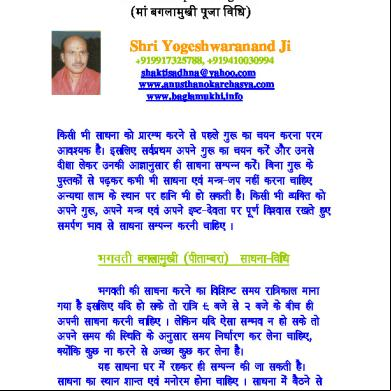 (मां बगलामुखी पूजा विधि)
Shri Yogeshwaranand Ji
+919917325788, +919410030994
shaktisadhna@yahoo.com
www.anusthanokarehasya.com
www.baglamukhi.info
किसी भी साधना को प्रारम्भ करने से पहले गुरू का चयन करना परम
आवश्यक है। इसलिए सर्वप्रथम अपने गुरू का चयन करें और उनसे
दीक्षा लेकर उनकी आज्ञानुसार ही साधना सम्पन्न करें। बिना गुरू के
पुस्तकों से पढ़कर कभी भी साधना एवं मन्त्र-जप नहीं करना चाहिए
अन्यथा लाभ के स्थान पर हानि भी हो सकती है। किसी भी व्यक्ति को
अपने गुरू, अपने मन्त्र एवं अपने इष्ट-देवता पर पूर्ण विश्वास रखते हुए
समर्पण भाव से साधना सम्पन्न करनी चाहिए ।
भगवती बगलामुखी (पीताम्बरा) साधना-विधि
भगवती की साधना करने का विशिष्ट समय रात्रिकाल माना
गया है इसलिए यदि हो सके तो रात्रि ९ बजे से २ बजे के बीच ही
अपनी साधना करनी चाहिए । लेकिन यदि ऐसा सम्भव न हो सके तो
अपने समय की स्थिति के अनुसार समय निर्धारण कर लेना चाहिए,
क्योंकि कुछ ना करने से अच्छा कुछ कर लेना है।
यह साधना घर में रहकर ही सम्पन्न की जा सकती है।
साधना का स्थान शान्त एवं मनोरम होना चाहिए । साधना में बैठने से